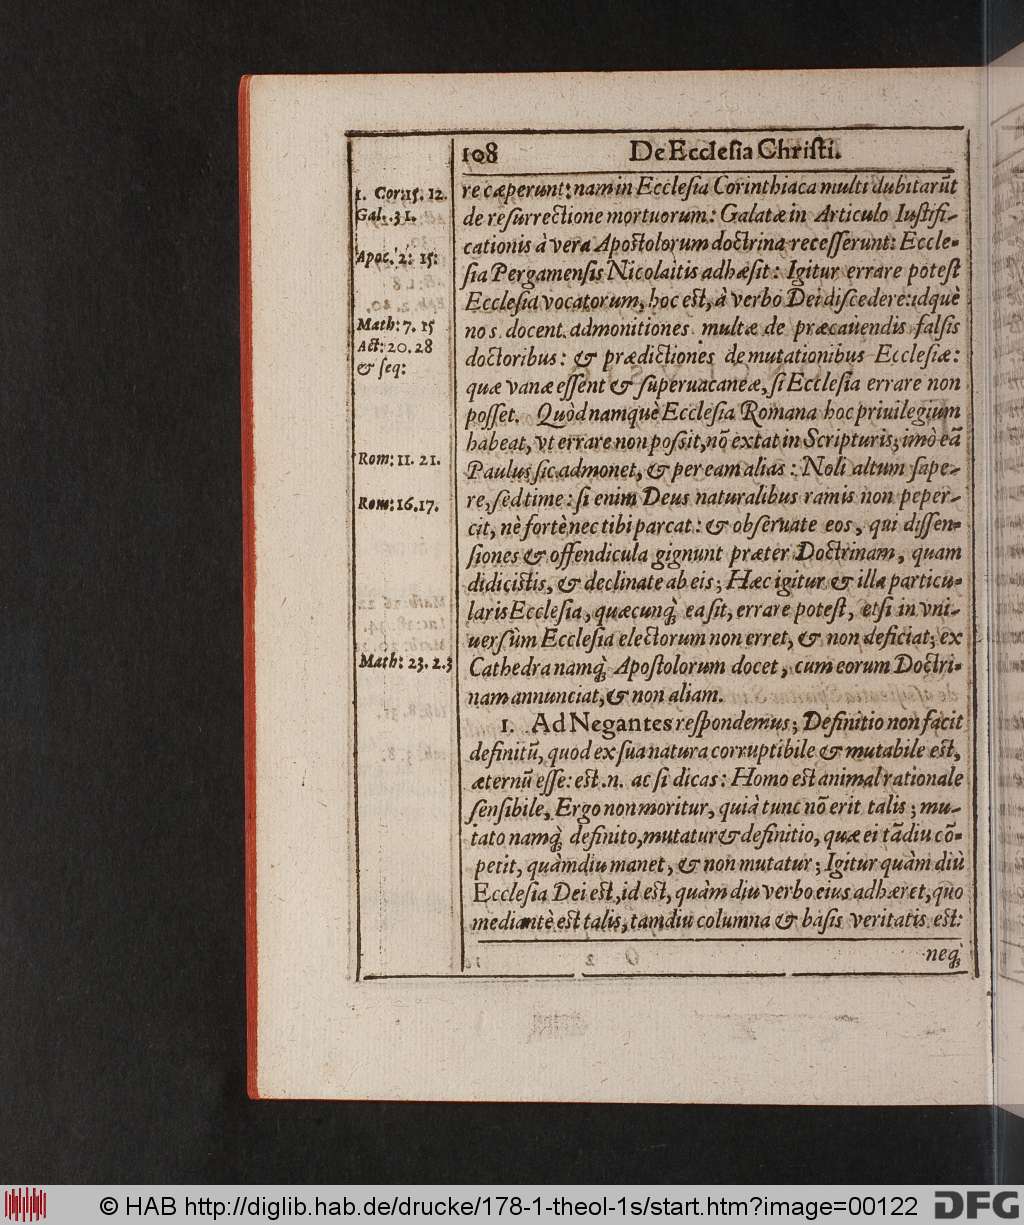 108 De Ecclesia Christi.
1. Cor:15. 12.
Gal:.31.
Apoc. 2: 15:
Math: 7. 15
Act: 20. 28
& seq:
Rom: 11. 21.
Rom: 16. 17.
Math: 23. 2. 3
re cæperunt: nam in Ecclesia Corinthiaca multi dubitarũt
de resurrectione mortuorum: Galatæ in Articulo Iustifi-
cationis à vera Apostolorum doctrina recesserunt: Eccle-
sia Pergamensis Nicolaitis adhæsit: Igitur errare potest
Ecclesia vocatorum, hoc est, à verbo Dei discedere: idquè
nos docent admonitiones multæ de præcauendis falsis
doctoribus: & prædictiones de mutationibus Ecclesiæ:
quæ vanæ essent & superuacaneæ, si Ecclesia errare non
posset. Quòd namquè Ecclesia Romana hoc priuilegium
habeat, vt errare non possit, nõ extat in Scripturis; imò eã
Paulus sic admonet, & per eam alias: Noli altum sape-
re, sed time: si enim Deus naturalibus ramis non peper-
cit, nè fortè nec tibi parcat: & obseruate eos, qui dissen-
siones & offendicula gignunt præter Doctrinam, quam
didicistis, & declinate ab eis; Hæc igitur & illa particu-
laris Ecclesia, quæcunq́; ea sit, errare potest, etsi in vni-
uersùm Ecclesia electorum non erret, & non deficiat; ex
Cathedra namq́; Apostolorum docet, cum eorum Doctri-
nam annunciat, & non aliam.
1. Ad Negantes respondemus; Definitio non facit
definitũ, quod ex sua natura corruptibile & mutabile est,
æternũ esse: est .n. ac si dicas: Homo est animal rationale
sensibile, Ergo non moritur, quià tunc nõ erit talis; mu-
tato namq́; definito, mutatur & definitio, quæ ei tãdiu cõ-
petit, quàmdiu manet, & non mutatur; Igitur quàm diù
Ecclesia Dei est, id est, quàm diu verbo eius adhæret, quo
mediantè est talis, tamdiu columna & basis veritatis est:
neq́;
© HAB http://diglib.hab.de/drucke/178-1-theol-1s/start.htm?image=00122
DFG